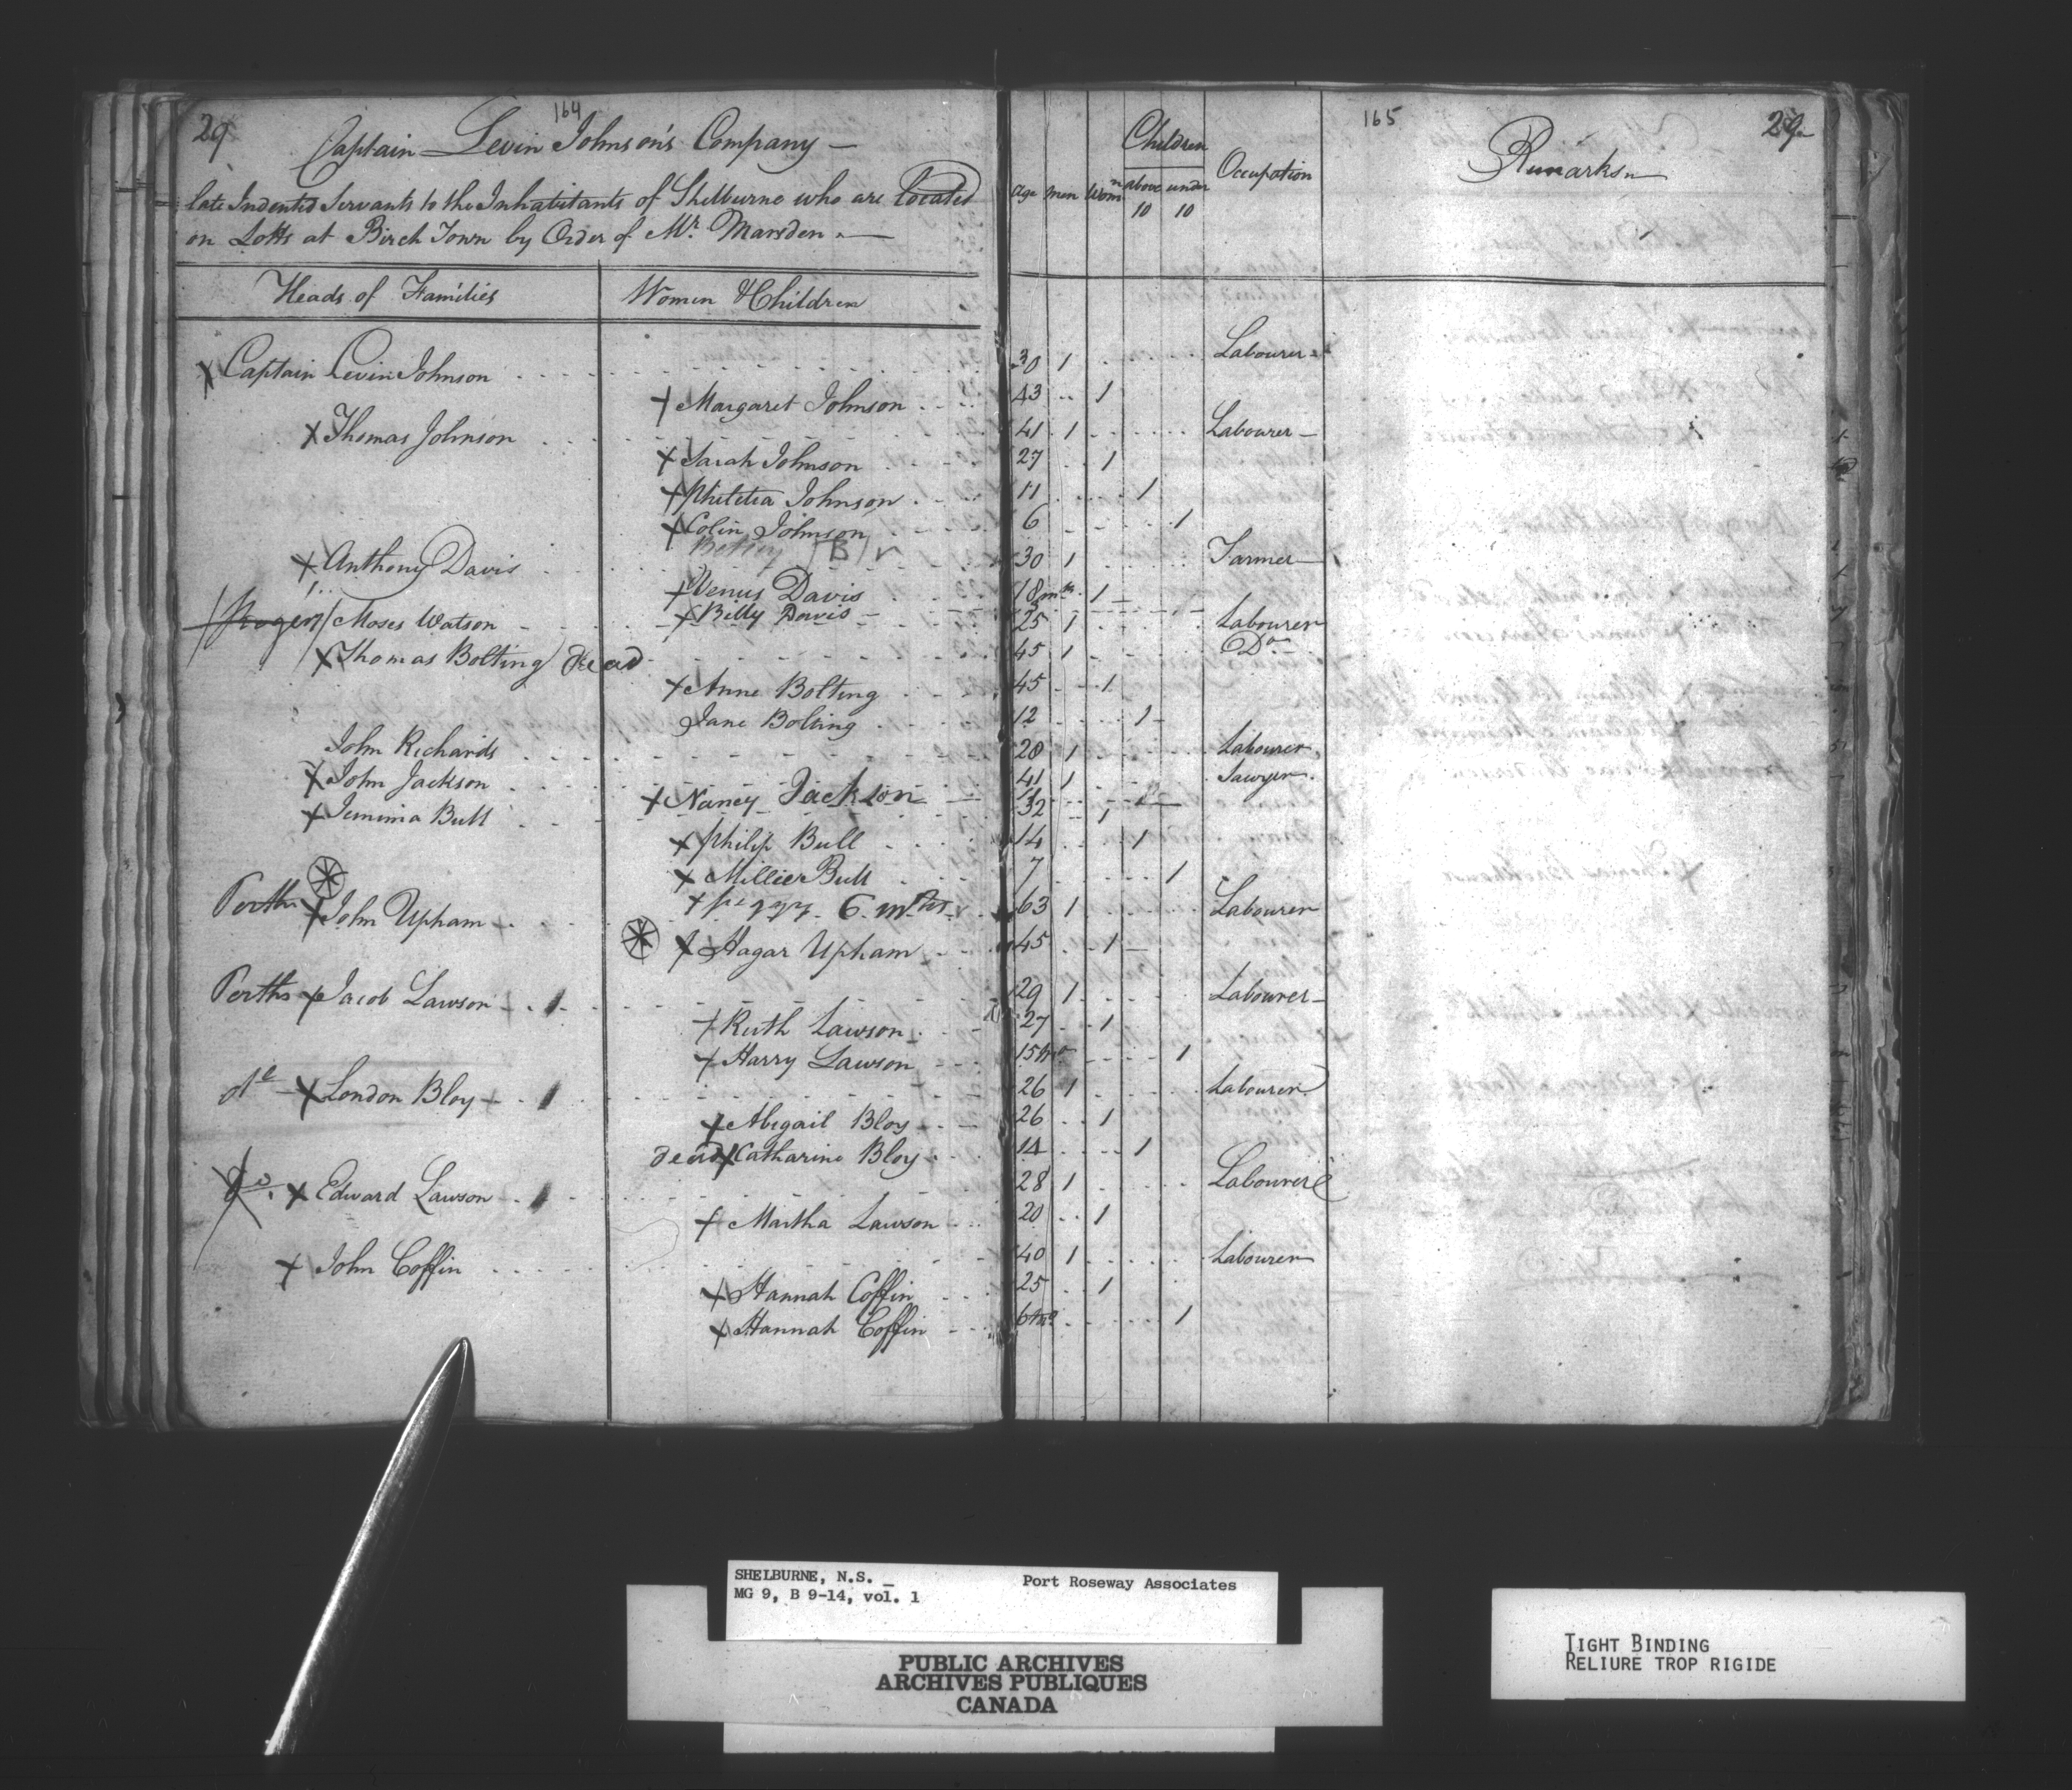 29 164
Captain Levin Johnson's Company —
late Indented Servants to the Inhabitants of Shelburne who are Located
on Lotts at Birch Town by Order of Mr. Marsden —
Heads of Families Women & Children
165 29
Age Men Womn Children above 10 under 10 Occupation Remarks
X Captain Levin Johnson 30 1 Labourer
X Margaret Johnson 43 1
X Thomas Johnson 41 1 Labourer
X Sarah Johnson 27 1
X Philitia Johnson 11 1
X Colin Johnson 6 1
Betsy B
X Anthony Davis 30 1 Farmer
X Venus Davis 18 1
X Billy Davis
/Roger/ Moses Watson 25 1 Labourer
X Thomas Bolting Dead 45 1 Do
X Anne Bolting 45 1
Jane Bolting 12 1
John Richards 28 1 Labourer
X John Jackson 41 1 Sawyer
X Nancy Jackson
X Jemima Bull 32 1
X Philip Bull 14 1
X Millie Bull 7 1
X Peggy 6 mths
Perths X John Upham 63 1 Labourer
X Hagar Upham 45 1
Perths X Jacob Lawson 29 1 Labourer
X Ruth Lawson 27 1
X Harry Lawson 15 mo 1
do X London Bloy 26 1 Labourer
X Abigail Bloy 26 1
dead X Catharine Bloy 14 1
do. X Edward Lawson 28 1 Labourer
X Martha Lawson 20 1
X John Coffin 40 1 Labourer
X Hannah Coffin 25 1
X Hannah Coffin 6 mo 1
SHELBURNE, N.S. _ Port Roseway Associates
MG 9, B 9-14, vol. 1
PUBLIC ARCHIVES
ARCHIVES PUBLIQUES
CANADA
TIGHT BINDING
RELIURE TROP RIGIDE